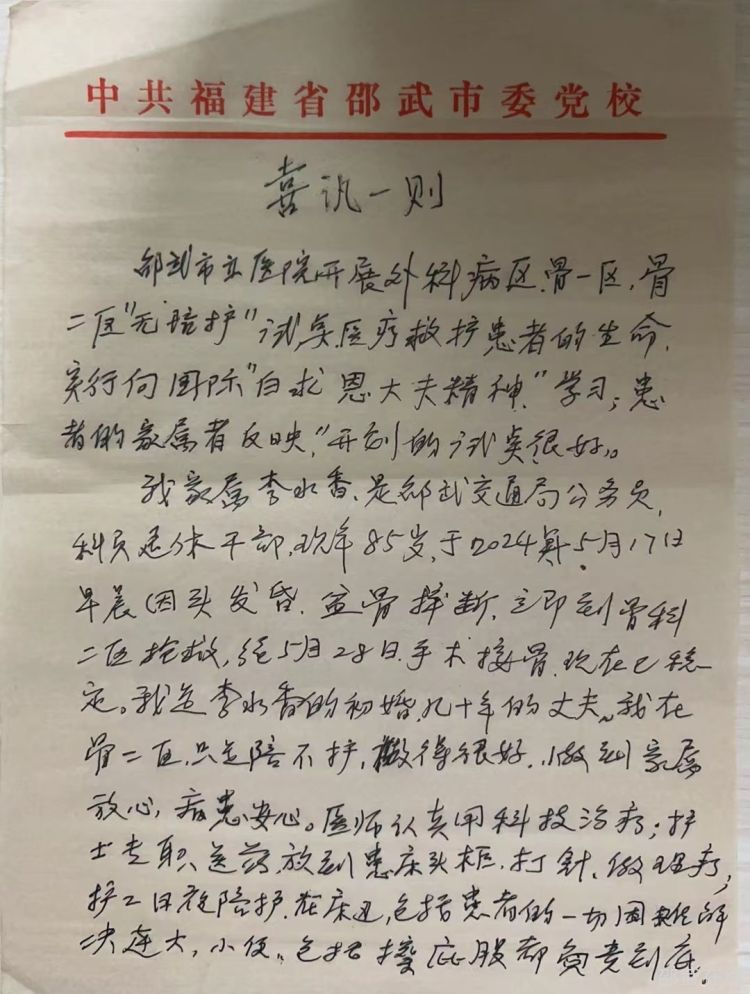 中共福建省邵武市委党校
喜讯一则
邵武市立医院开展外科病区、骨一区、骨
二区"无陪护"试点医疗救护患者的生命,
实行向国际"白求恩大夫精神"学习;患
者的家属者反映,"开创的试点很好"。
我家属李水香,是邵武交通局公务员,
科员退休干部,现年85岁,于2024年5月17日
早晨因头发昏、盆骨摔断,立即到骨科
二区抢救,经5月28日手术接骨,现在已稳
定。我是李水香的初婚,几十年的丈夫,我在
骨二区,只是陪不护,做得很好,做到家属
放心,病患安心。医师认真用科技治疗;护
士专职送药,放到患床头柜,打针、做理疗;
护工日夜陪护在床边,包括患者的一切困难解
决连大、小便,包括擦屁股都负责到底。